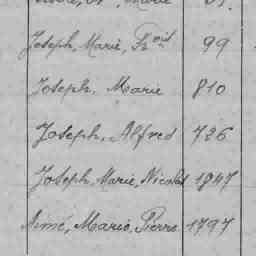 Joseph, Marie, Fr. cois 99
Joseph, Marie 810
Joseph, Alfred 726
Joseph, Marie, Nicolas 1847
Aimé, Marie, Pierre 1797